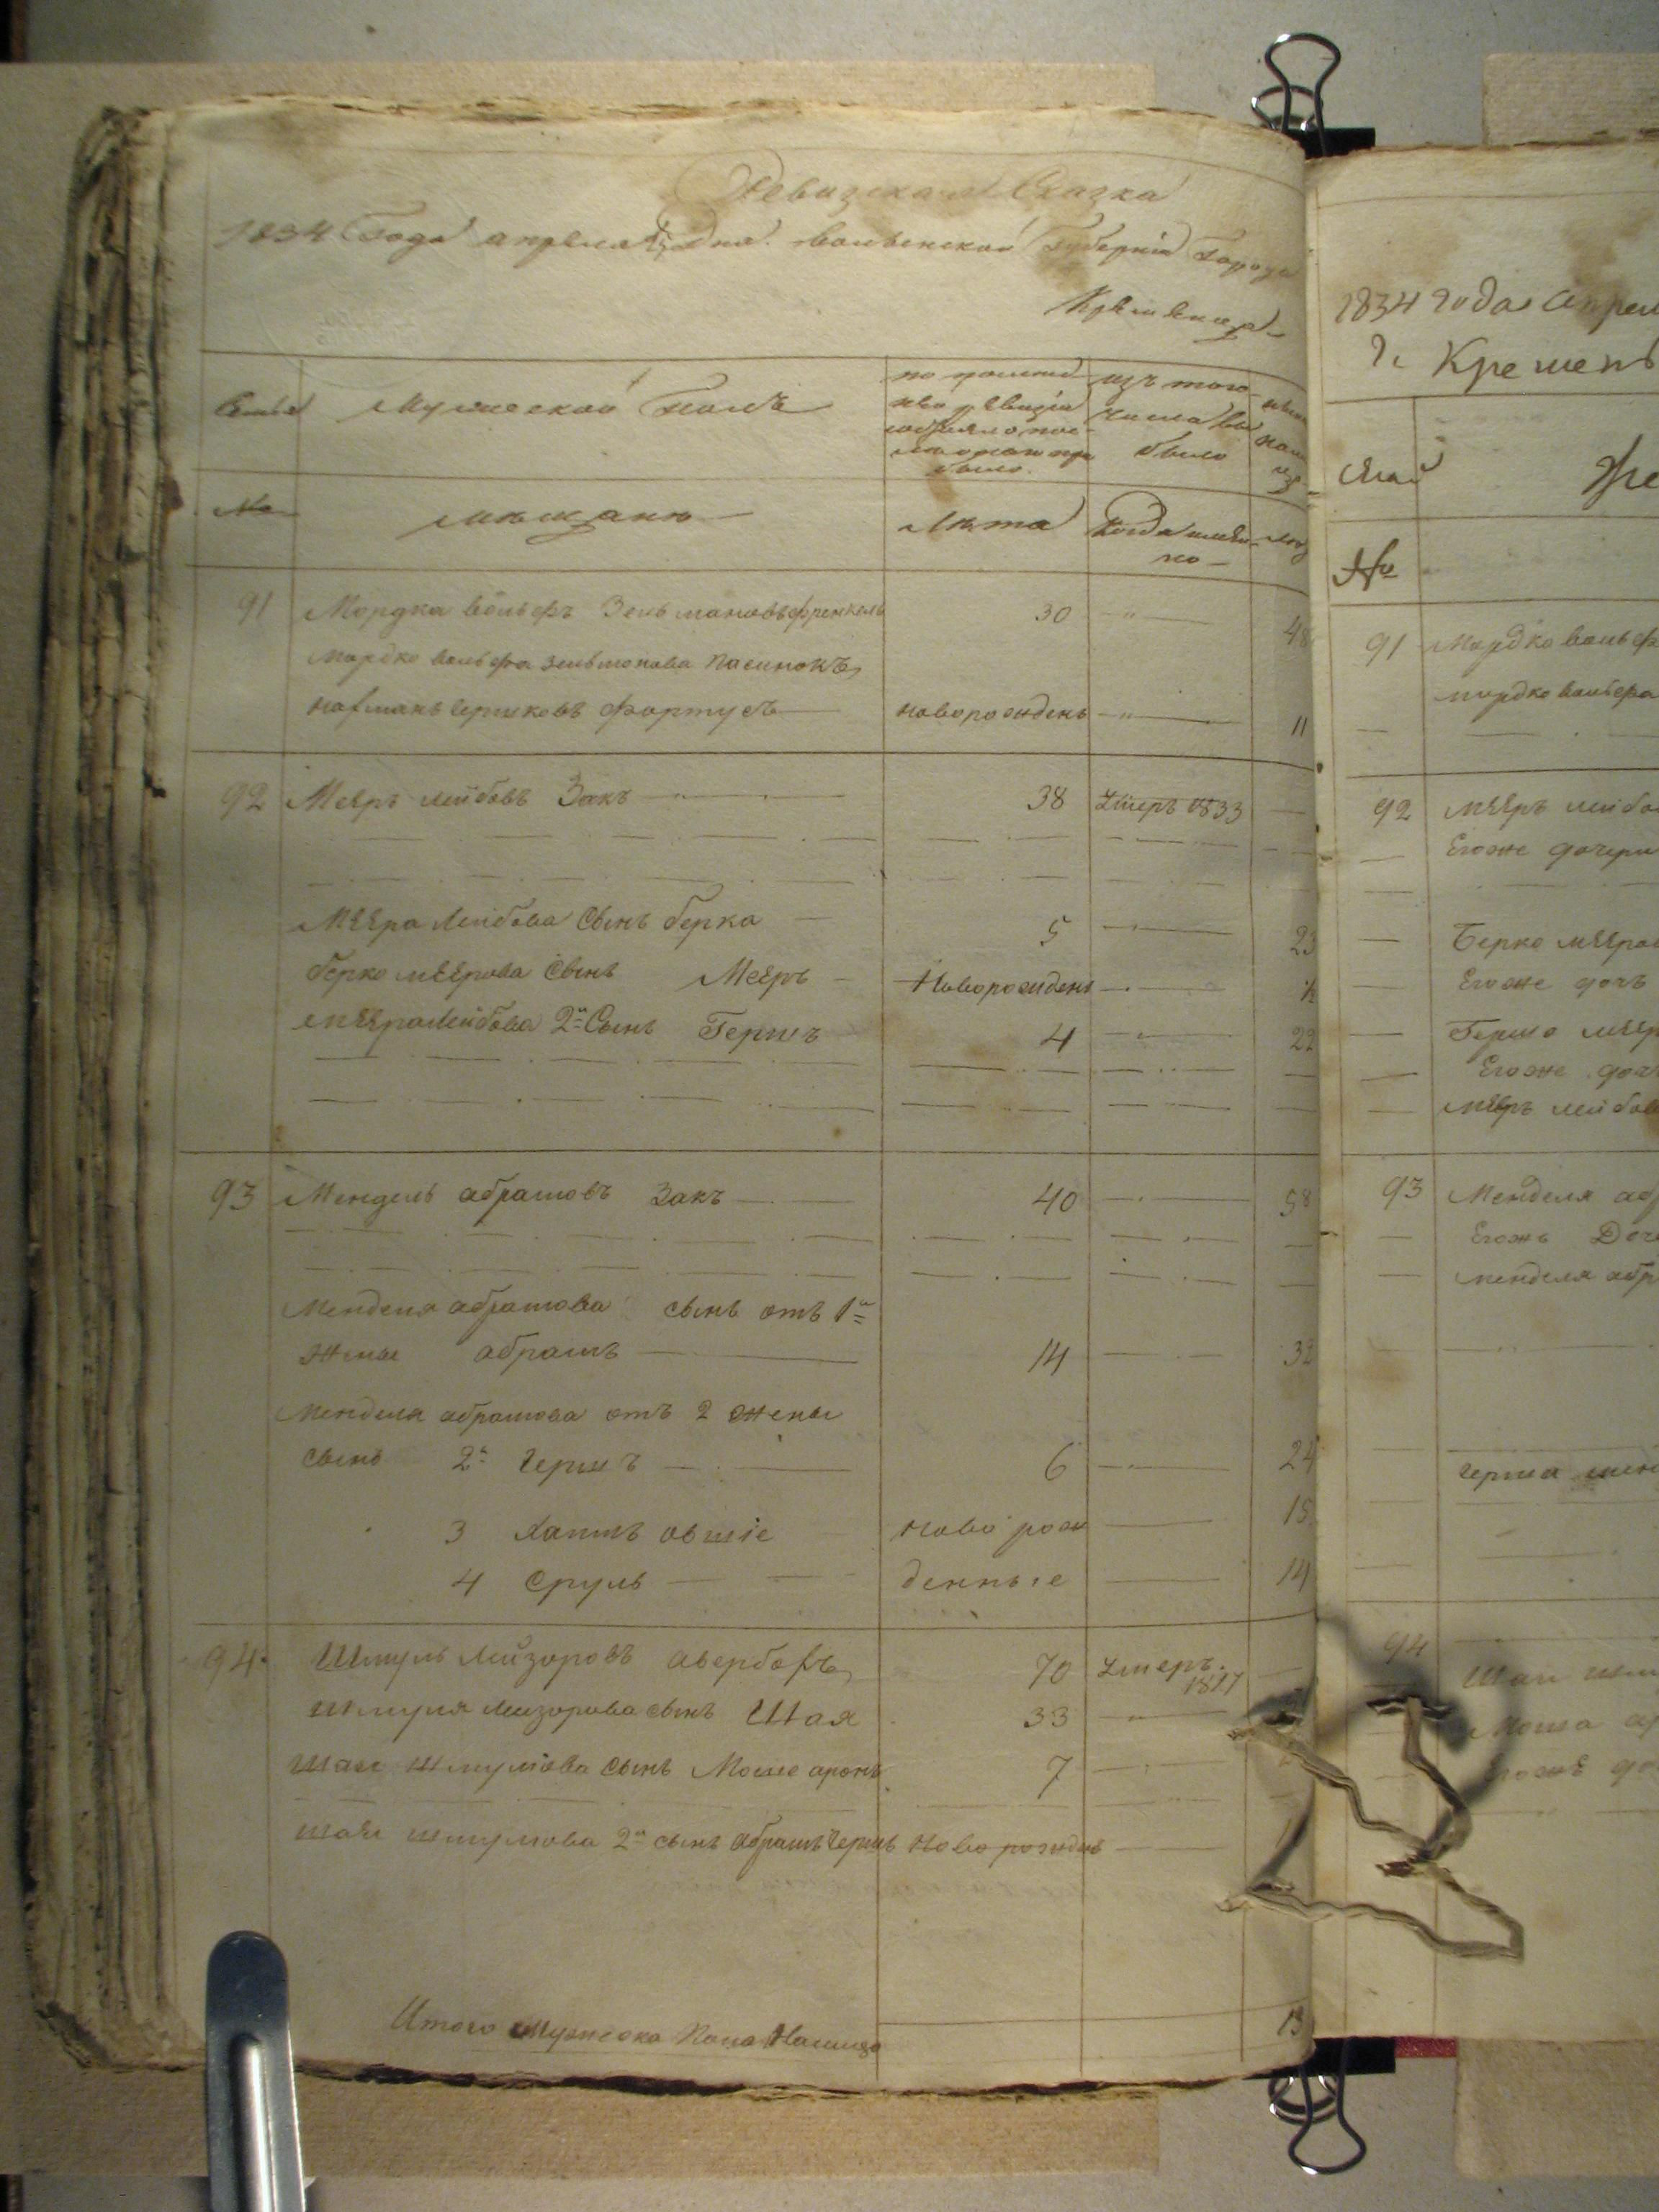 Ревизская Сказка
1834 Года апреля Дня. волынской Губернiи Города
Кременца
Семьи
Мужеской Полъ
изъ того
числа вы
было
№
мѣщане
Лѣта
Когда имян
но
91 Мордка вольфъ Зельмановъ френкель 30 48
мордко вольфа зельмонова пасинокъ
нахманъ Гершковъ фортусъ новорожденъ 11
92 Меѣръ лейбовъ Закъ 38 Умеръ 1833
Мѣѣра Лейбова Сынъ берка 5 23
берко мѣѣрова Сынъ Меѣръ Новорожденъ ½
мѣѣра Лейбова 2й Сынъ Гершъ 4 22
93 Мендель абрамовъ Закъ 40 58
менделя абрамова сынъ отъ 1й
жены абрамъ 14 32
менделя абрамова отъ 2 жены
сынъ 2й Гершъ 6 24
3 Хаимъ овшiе ново рож 15
4 Сруль денные 14
94 Шмуль Лейзоровъ авербахъ 70 Умеръ
Шмуля Лейзорова сынъ Шая 33
Шаи Шмулiова Сынъ Мошео аронъ 7
шаи шмулiова 2й сынъ абрамъ Гершъ Новорожденъ
Итого Мужеска Пола Налицо 13
1834 года Апрел
г. Кременъ
№
91 Мордко вольф
мордко вольфа
92 Мѣѣръ лейбо
Егоже дочери
Берко мѣѣров
Егоже дочъ
Гершо мѣѣр
Егоже доч
мѣѣръ лейбов
93 Менделя аб
Егожъ Доч
менделя абр
герша мен
94
Шаи шм